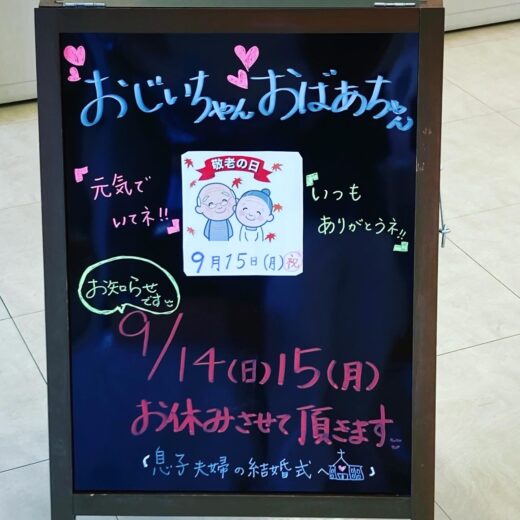 おじいちゃん おばあちゃん
敬老の日
元気で
いてネ!!
いつも
ありがとうネ!!
9月15日(月)祝
お知らせ
です
9/14(日)15(月)
お休みさせて頂きます
息子夫婦の結婚式へ